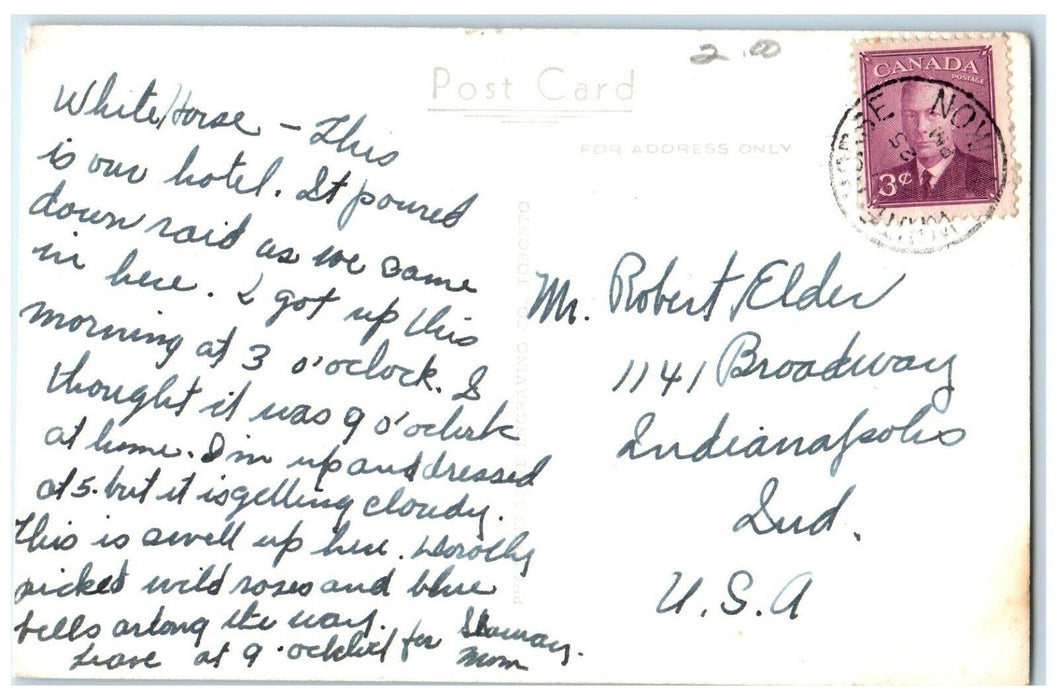 2.00
Post Card
FOR ADDRESS ONLY
CANADA
POSTAGE
3¢
NOV
PM
52
WhiteHorse – This
is our hotel. It poured
down raid as we came
in here. I got up this
morning at 3 o'clock. I
thought it was 9 o'clock
at home. I'm up and dressed
at 5. but it is getting cloudy.
This is swell up here. Dorothy
picked wild roses and blue
bells along the way.
Leave at 9 o'clock for Skagway.
Mom
ENGRAVING CO. TORONTO
Mr. Robert Elder
1141 Broadway
Indianapolis
Ind.
U.S.A